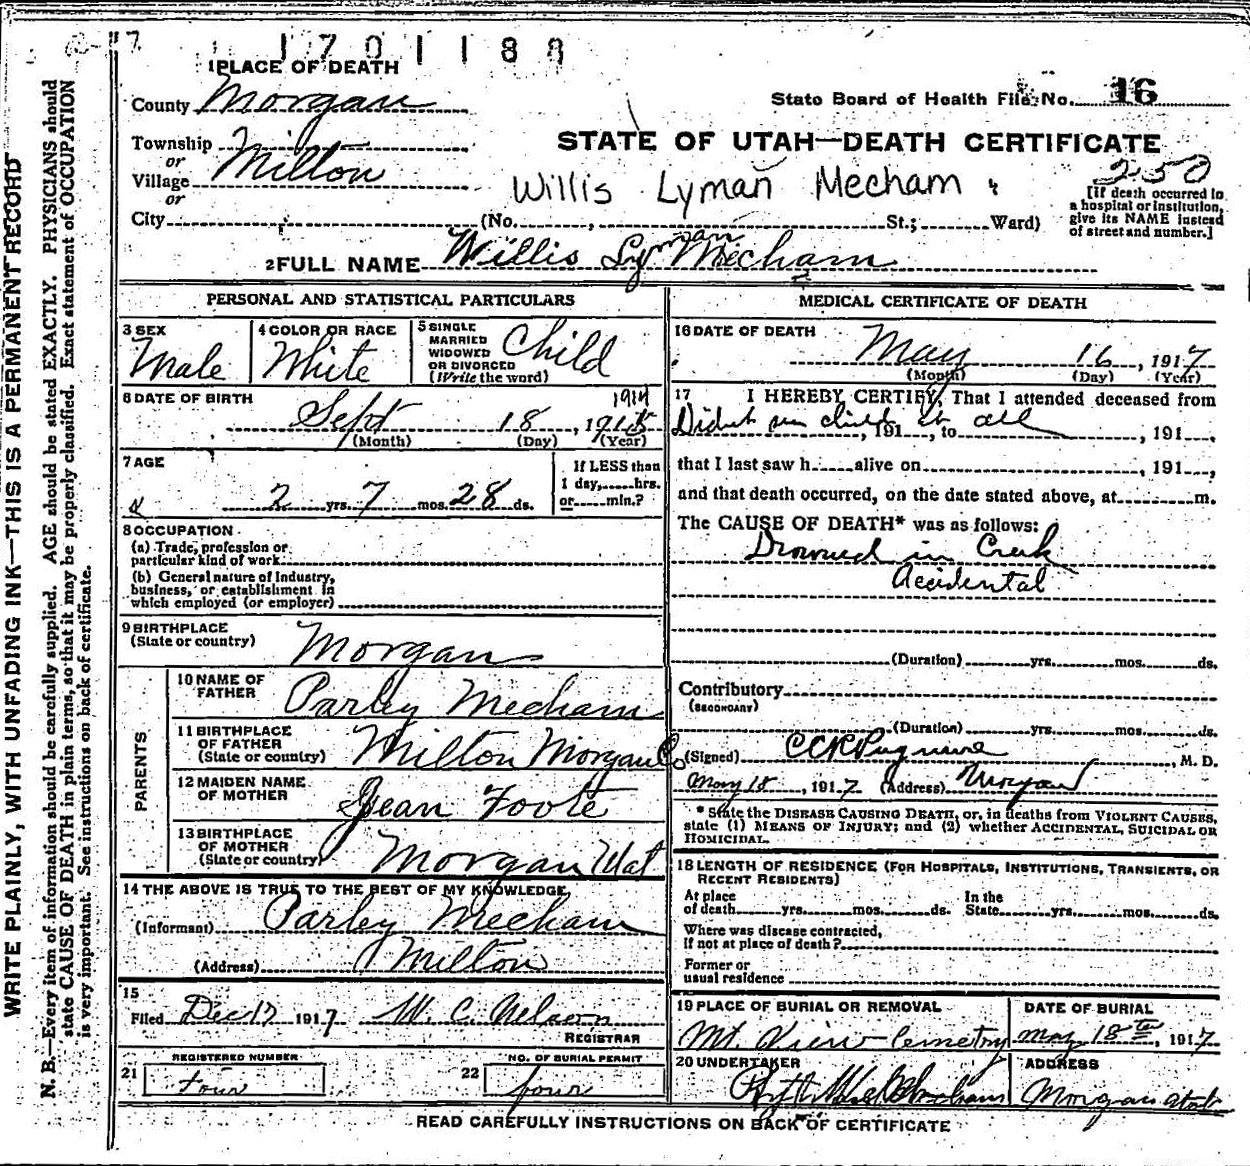 1701188
1 PLACE OF DEATH
County Morgan
State Board of Health File No. 16
Township
or
Village Milton
or
City
STATE OF UTAH—DEATH CERTIFICATE
250
Willis Lyman Mecham
(No. , St.; Ward)
[If death occurred in
a hospital or institution,
give its NAME instead
of street and number.]
2 FULL NAME Willis Lyman Mecham
PERSONAL AND STATISTICAL PARTICULARS
3 SEX
Male
4 COLOR OR RACE
White
5 SINGLE
MARRIED
WIDOWED
OR DIVORCED
(Write the word)
Child
6 DATE OF BIRTH
1914
Sept 18, 191
(Month) (Day) (Year)
7 AGE
2 yrs. 7 mos. 28 ds.
If LESS than
1 day, hrs.
or min.?
8 OCCUPATION
(a) Trade, profession or
particular kind of work
(b) General nature of industry,
business, or establishment in
which employed (or employer)
9 BIRTHPLACE
(State or country) Morgan
PARENTS
10 NAME OF
FATHER Parley Mecham
11 BIRTHPLACE
OF FATHER
(State or country) Milton Morgan Co
12 MAIDEN NAME
OF MOTHER Jean Foote
13 BIRTHPLACE
OF MOTHER
(State or country) Morgan Utat
14 THE ABOVE IS TRUE TO THE BEST OF MY KNOWLEDGE,
(Informant) Parley Mecham
(Address) Milton
15
Filed Dec 17 1917 W. C. Nelson
REGISTRAR
21 REGISTERED NUMBER
four
22 NO. OF BURIAL PERMIT
four
MEDICAL CERTIFICATE OF DEATH
16 DATE OF DEATH
May 16, 1917
(Month) (Day) (Year)
17 I HEREBY CERTIFY, That I attended deceased from
Didnt see child at all, 191 , to , 191 ,
that I last saw h alive on , 191 ,
and that death occurred, on the date stated above, at m.
The CAUSE OF DEATH* was as follows:
Drowned in Creek
Accidental
(Duration) yrs. mos. ds.
Contributory
(SECONDARY)
(Duration) yrs. mos. ds.
(Signed) , M. D.
May 18, 1917 (Address) Morgan
* State the DISEASE CAUSING DEATH, or, in deaths from VIOLENT CAUSES,
state (1) MEANS OF INJURY; and (2) whether ACCIDENTAL, SUICIDAL OR
HOMICIDAL.
18 LENGTH OF RESIDENCE (FOR HOSPITALS, INSTITUTIONS, TRANSIENTS, OR
RECENT RESIDENTS)
At place
of death yrs. mos. ds.
In the
State yrs. mos. ds.
Where was disease contracted,
If not at place of death?
Former or
usual residence
19 PLACE OF BURIAL OR REMOVAL
Mt View Cemetery
DATE OF BURIAL
May 18th, 1917
20 UNDERTAKER
ADDRESS
Morgan
READ CAREFULLY INSTRUCTIONS ON BACK OF CERTIFICATE
WRITE PLAINLY, WITH UNFADING INK—THIS IS A PERMANENT RECORD
N. B.—Every item of information should be carefully supplied. AGE should be stated EXACTLY. PHYSICIANS should
state CAUSE OF DEATH in plain terms, so that it may be properly classified. Exact statement of OCCUPATION
is very important. See instructions on back of certificate.